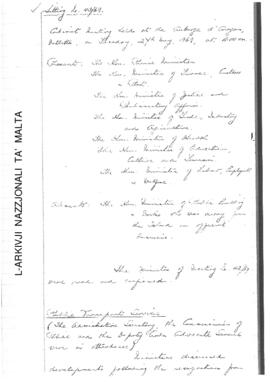 Sitting No. 42/69.
Cabinet Meeting held at the Auberge d'Aragon,
Valletta, on Tuesday, 27th May, 1969, at
Present: The Hon. Prime Minister
The Hon. Minister of Finance, Customs
& Port.
The Hon. Minister of Justice and
Parliamentary Affairs.
The Hon. Minister of Trade, Industry
and Agriculture.
The Hon. Minister of Health
The Hon. Minister of Education,
Culture and Tourism
The Hon. Minister of Labour, Employment
& Welfare.
Absent: The Hon. Minister of Public Building
& Works who was away from
the Island on official
business.
The Minutes of Meeting No.
were read and confirmed.
Public Transport Service
(The Administrative Secretary, the Commissioner of
Police and the Deputy Crown Advocate General
were in attendance)
Ministers discussed
developments following the
L-ARKIVJI NAZZJONALI TA' MALTA